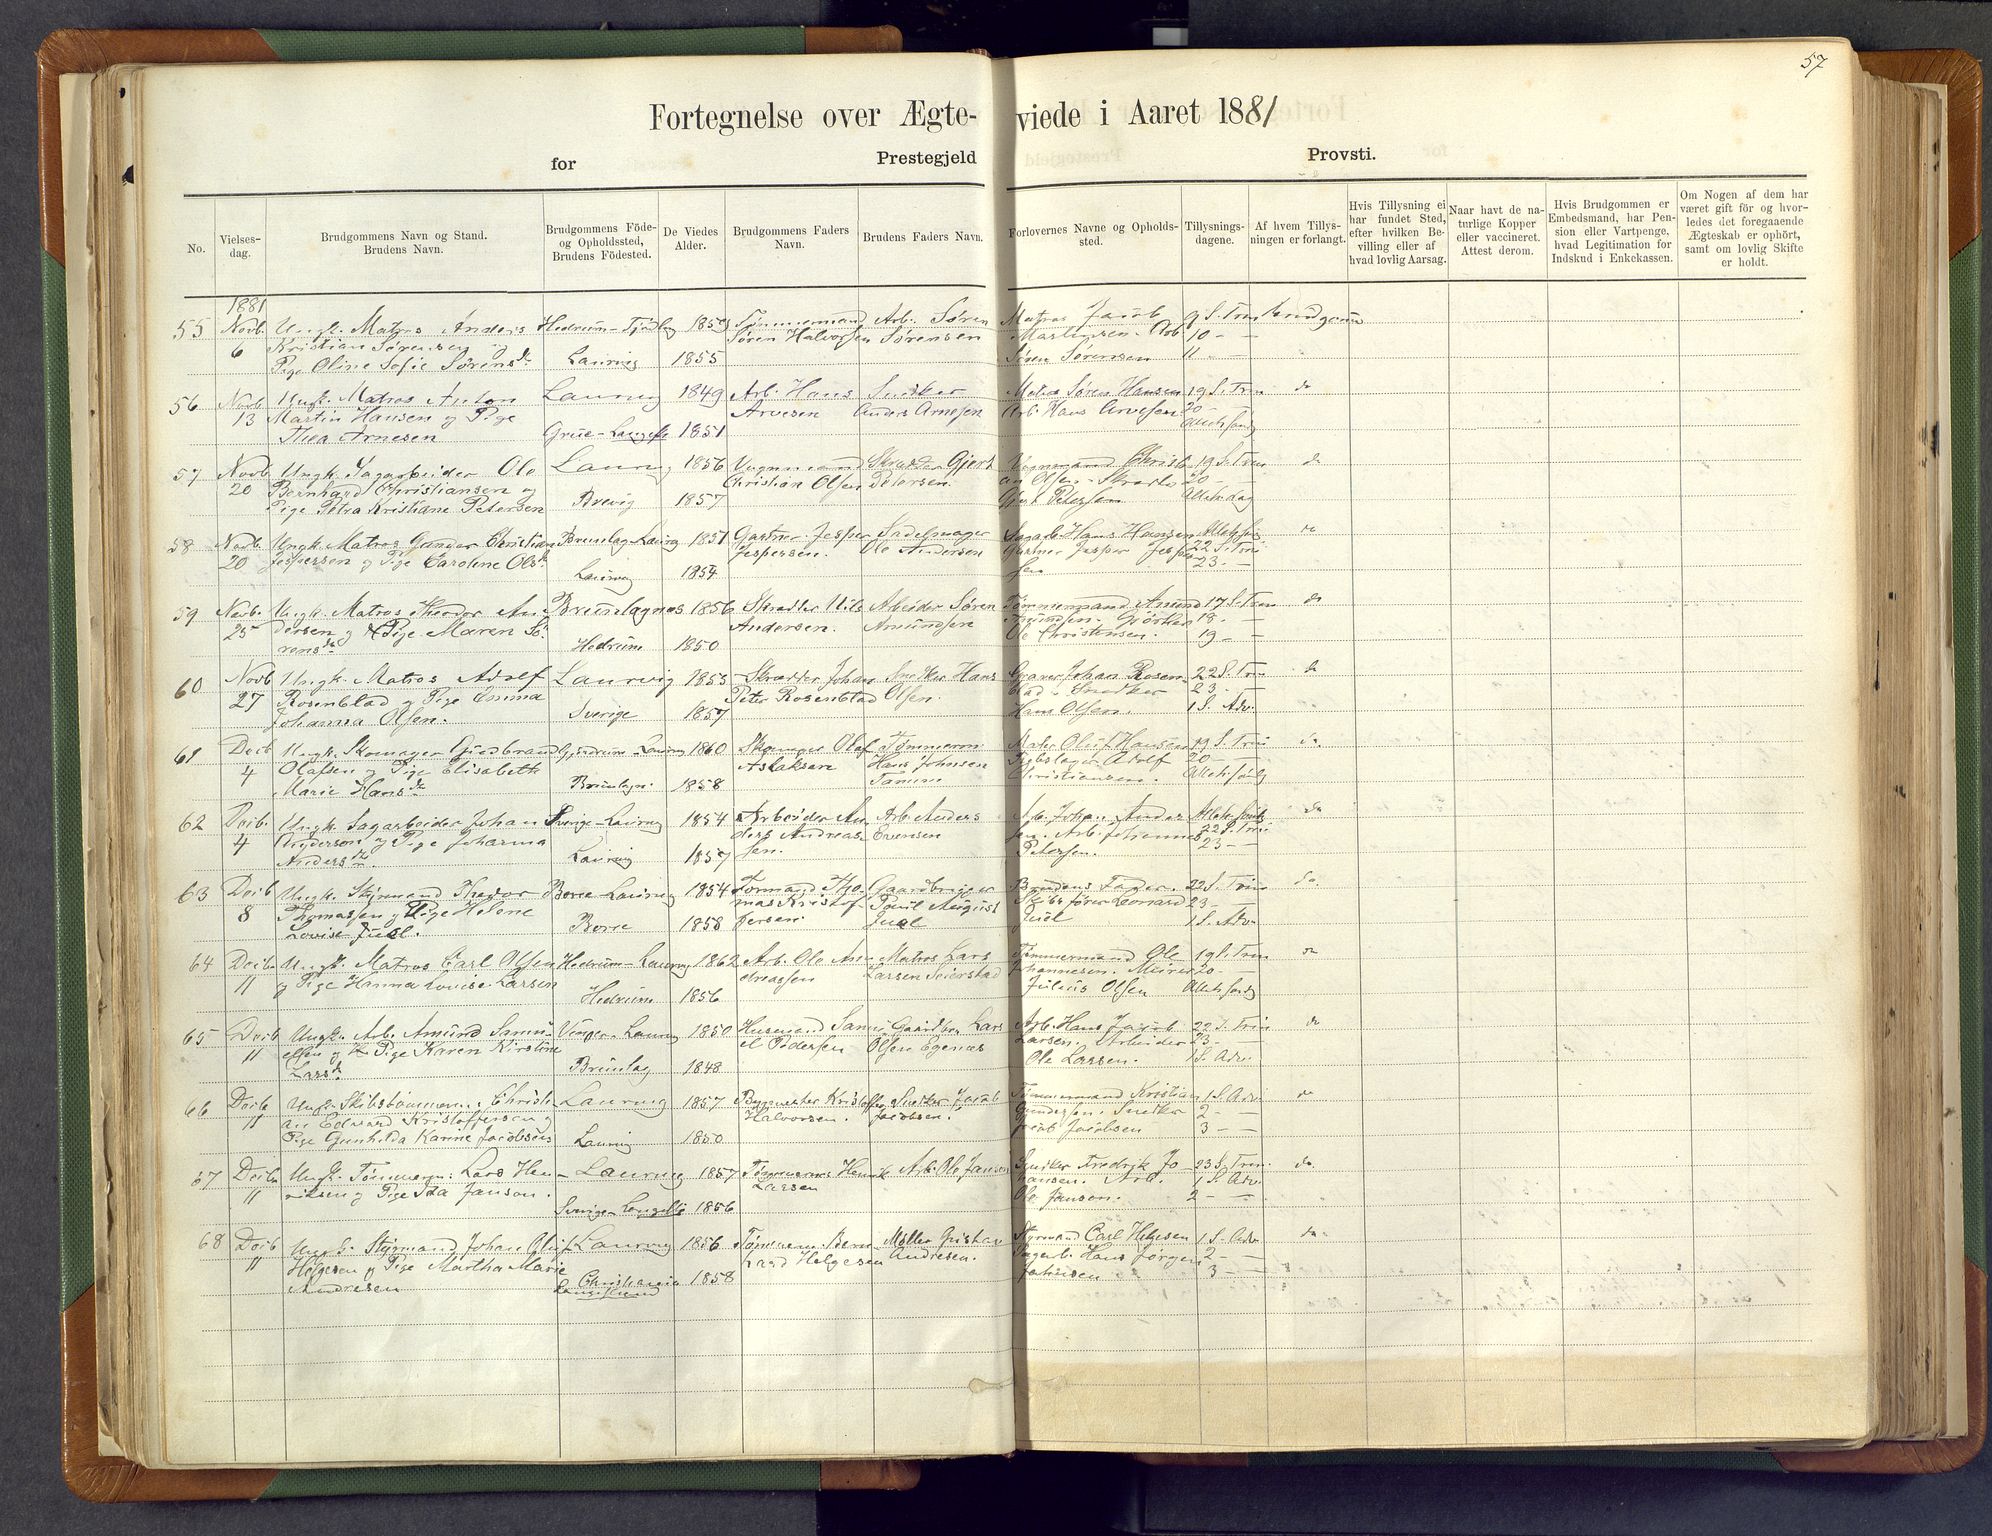 57
Fortegnelse over Ægteviede i Aaret 1881
for Prestegjeld Provsti.
No. Vielsesdag. Brudgommens Navn og Stand. Brudens Navn. Brudgommens Föde- og Opholdssted, Brudens Födested. De Viedes Alder. Brudgommens Faders Navn. Brudens Faders Navn. Forlovernes Navne og Opholdssted. Tillysningsdagene. Af hvem Tillysningen er forlangt. Hvis Tillysning ei har fundet Sted, efter hvilken Bevilling eller af hvad lovlig Aarsag. Naar havt de naturlige Kopper eller vaccineret. Attest derom. Hvis Brudgommen er Embedsmand, har Pension eller Vartpenge, hvad Legitimation for Indskud i Enkekassen. Om Nogen af dem har været gift för og hvorledes det foregaaende Ægteskab er ophört, samt om lovlig Skifte er holdt.
1881
55 Novb. Ungk. Matros Anders Hedrum - 1859 Tömmermand Arb. Sören Matros Jacob 9 S. Trin Brudgom
6 Kristian Sörensen og Sören Halvorsen Sörensen Arb. 10 -
Pige Oline Sofie Sörensd. Laurvig 1855 Sören Sörensen 11 -
56 Novb Ungk. Matros Anton Laurvig 1849 Arb. Hans Snedker Matros Sören Hansen 19 S. Trin do
13 Martin Hansen og Pige Arvesen Anders Arnesen Arb. Hans Arvesen 20 -
Thea Arnesen Grue - 1851
57 Novb Ungk. Sagarbeider Ole Laurvig 1856 Vognmand Skrædder Gjert Vognmand Christi 19 S. Trin do
20 Bernhard Christiansen og Christian Olsen Petersen. an Olsen - 20 -
Pige Petra Kristiane Petersen Brevig 1857 Gjert Petersen
58 Novb. Ungk. Matros Gunder Christian Brunlag Laurvig 1851 Gartner Jesper Sadelmager Hans Hansen do
20 Jespersen og Pige Caroline Olsd. Jespersen. Ole Andersen Gartner Jesper Jesper 22 S. Trin
Laurvig 1854 sen 23 -
59 Novb. Ungk. Matros Theodor An Brunlagnæs 1856 Skrædder Nils Arbeider Sören Tömmermand Amund 17 S. Trin do
25 dersen og Pige Maren Sö Andersen. Amundsen Amundsen. 18 -
rensd. Hedrum 1850 Ole Christensen. 19 -
60 Novb Ungk. Matros Adolf Laurvig 1853 Skrædder Johan Snedker Hans Johan Rosen 22 S. Trin do
27 Rosenblad og Pige Emma Peter Rosenblad Olsen blad - Snedker 23 -
Johanna Olsen. Sverige 1857 Hans Olsen. 1 S. Adv.
61 Decb Ungk. Skomager Laurvig 1860 Skomager Olaf Tömmerm Matr. Oluf Hansen 19 S. Trin do.
4 Olafsen og Pige Elisabeth Aslaksen Hans Johnsen Adolf 20 -
Marie Hansd. Brunlagn. 1858 Tanum Christiansen.
62 Decb. Ungk. Sagarbeider Johan Sverige - Laurvig 1854 Arbeider An Arb. Anders Arb. Johan Ander do
4 Anderson og Pige Johanna ders Andreas Evensen sen. Arb. Johannes 22 S. Trin
Andersd. Laurvig 1857 sen. Petersen. 23 -
63 Decb Ungk. Styrmand Theodor Borre - Laurvig 1854 Formand Tho Gaardbruger Brudens Fader. 22 S. Trin do.
8 Thomassen og Pige Helene mas Kristof Poul August Skibsförer Leonard 23 -
Lovise Juel. Borre 1858 fersen Juel Juel 1 S. Adv
64 Decb. Ungk. Matros Carl Olsen Hedrum - Laurvig 1862 Arb. Ole An Matros Lars Tömmermand Ole 19 S. Trin do
11 og Pige Hanna Lovise Larsen dreassen Larsen Seierstad Johannesen. Murer 20 -
Hedrum 1856 Julius Olsen
65 Decb Ungk. Arb. Amund Samu Laurvig 1850 Husmand Samu Gaardbr. Lars Arb. Hans Jacob 22 S. Trin do
11 elsen og Pige Karen Kirstine el Pedersen Olsen Egenæs Larsen. Arbeider 23 -
Larsd. Brunlag 1848 Ole Larsen. 1 S. Adv.
66 Decb Ungk. Skibstömmerm. Christi Laurvig 1857 Kristoffer Snedker Jacob Tömmermand Kristian 1 S. Adv do
11 an Edvard Kristoffersen og Halvorsen. Jacobsen. Gundersen. Snedker 2 -
Pige Gunhilda Karine Jacobsen Laurvig 1850 Jacob Jacobsen 3 -
67 Decb Ungk. Tömmerm: Lars Hen - Laurvig 1857 Tömmerm Henrik Arb. Ole Janson Snedker Fredrik Jo 23 S. Trin. do
11 riksen og Pige Ida Janson. Larsen hansen. Arb. 1 S. Adv
Sverige - 1856 Ole Janson. 2 -
68 Decb Ungk. Styrmand Johan Oluf Laurvig 1856 Tömmerm. Bern Möller Gustav Styrmand Carl Helgesen 1 S. Adv do
11 Helgesen og Pige Martha Marie hard Helgesen Andresen. Hans Jörgen 2 -
Andresen Christiania 1858 Johnsen 3 -
Langesund